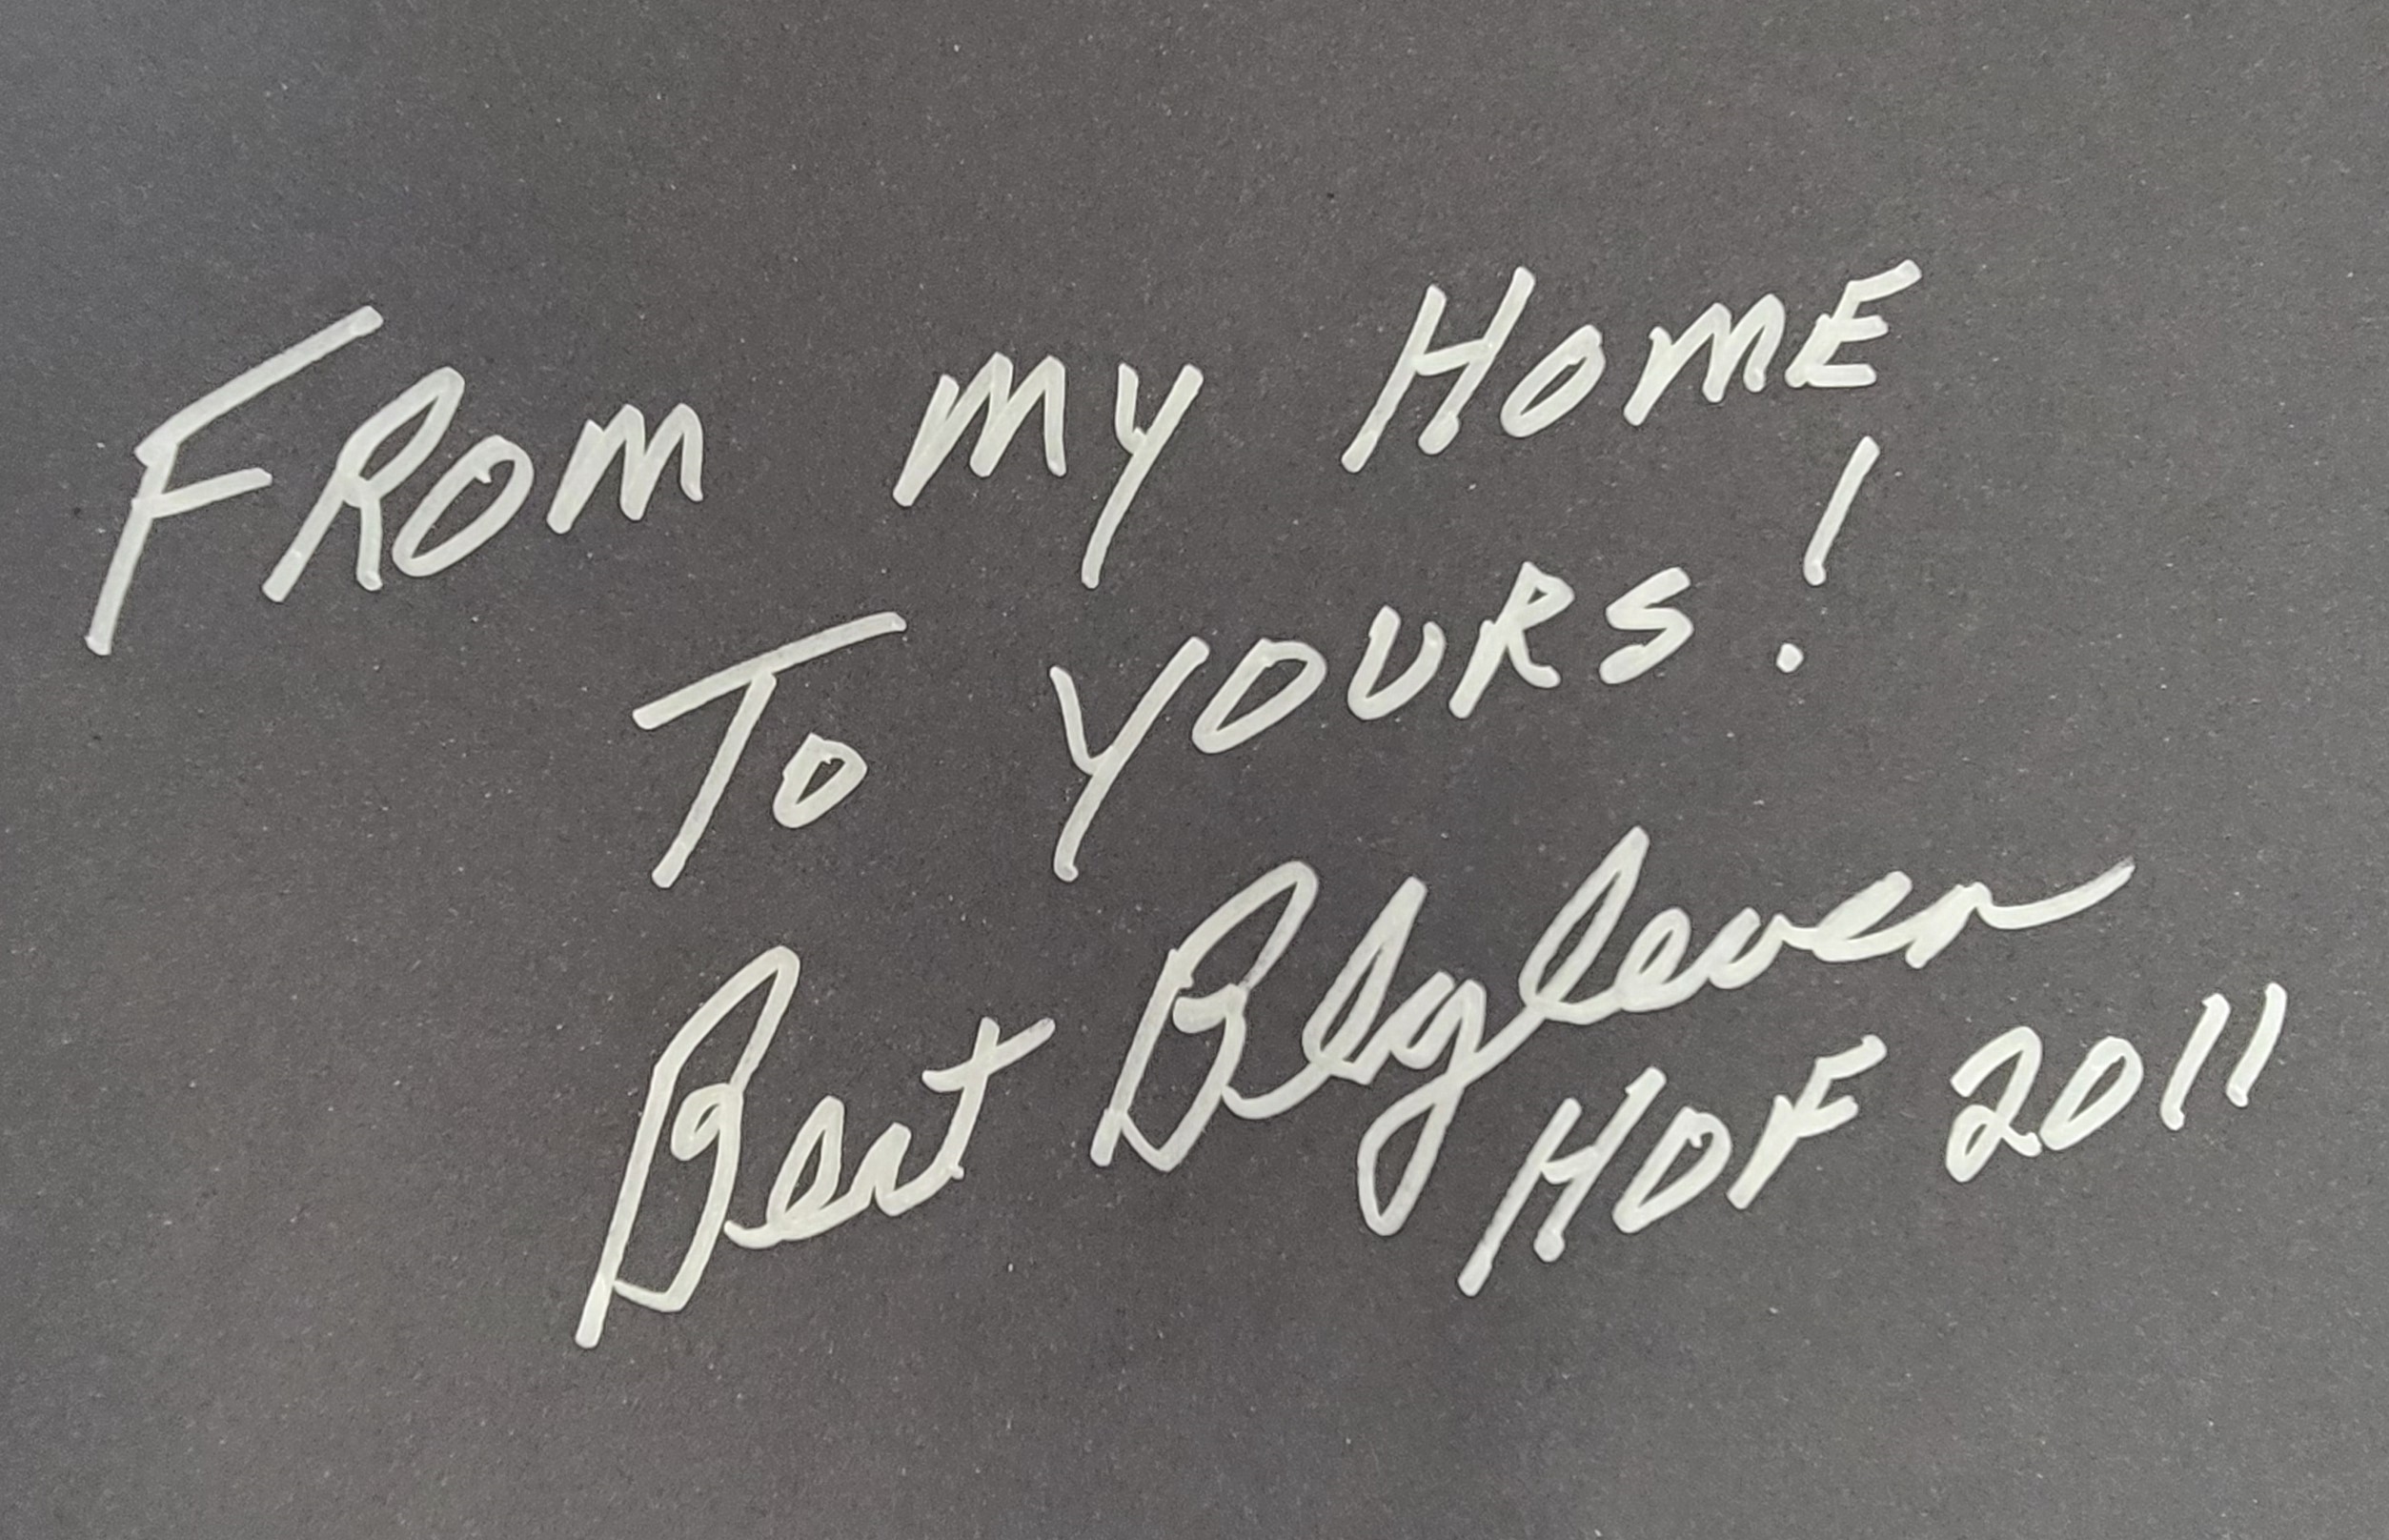 FROM MY HOME
TO YOURS!
Bert Blyleven
HOF 2011